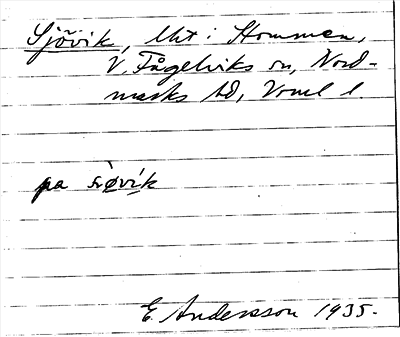 Sjövik, lht i Hommen,
V. Fågelviks sn, Nord-
marks hd, Vrml l.
pa sø̀vi̇k
E. Andersson 1935.